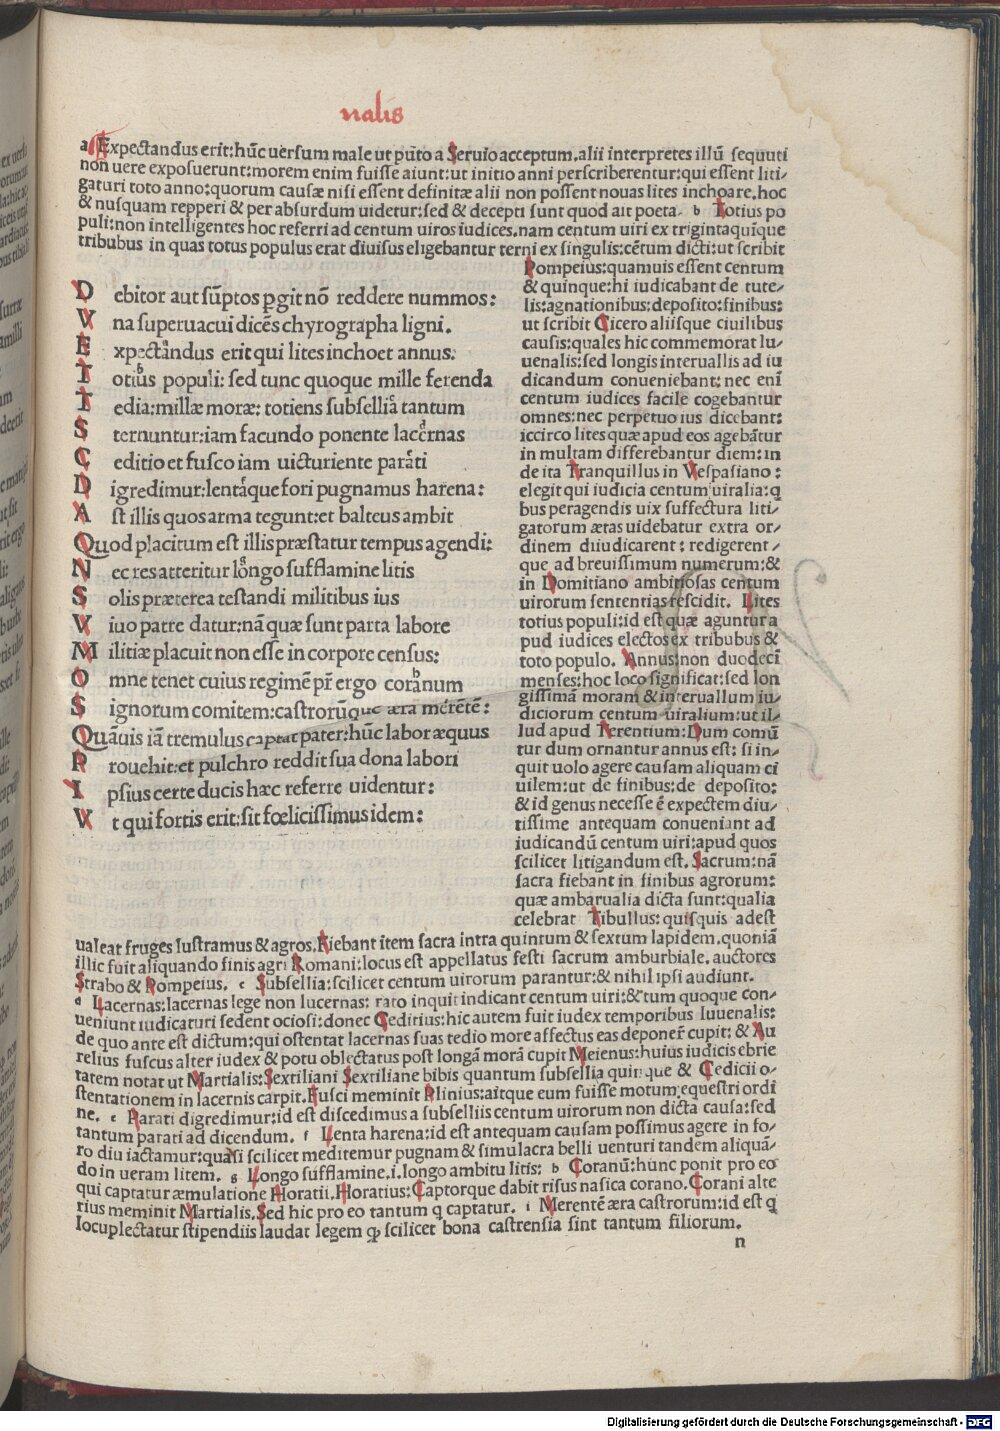 nalis
a Expectandus erit:hũc uersum male ut puto a Seruio acceptum.alii interpretes illũ sequuti
non uere exposuerunt:morem enim fuisse aiunt:ut initio anni perscriberentur:qui essent liti-
gaturi toto anno:quorum causæ nisi essent definitæ alii non possent nouas lites inchoare.hoc
& nusquam repperi & per absurdum uidetur:sed & decepti sunt quod ait poeta. b Totius po
puli:non intelligentes hoc referri ad centum uiros iudices.nam centum uiri ex trigintaquique
tribubus in quas totus populus erat diuisus eligebantur terni ex singulis:cẽtum dicti:ut scribit
D ebitor aut sũptos pgit nõ reddere nummos:
V na superuacui dicẽs chyrographa ligni.
E xpectandus erit qui lites inchoet annus. a
T otius populi: sed tunc quoque mille ferenda b
T edia:millæ moræ: totiens subsellia tantum c
S ternuntur:iam facundo ponente lacernas d
C editio et fusco iam uicturiente parati e
D igredimur:lentaque fori pugnamus harena: f
A st illis quos arma tegunt:et balteus ambit
Quod placitum est illis præstatur tempus agendi:
N ec res atteritur longo sufflamine litis g
S olis præterea testandi militibus ius
V iuo patre datur:nã quæ sunt parta labore
M ilitiæ placuit non esse in corpore census:
O mne tenet cuius regimẽ pr̃ ergo coranum h
S ignorum comitem:castrorũque æra merẽtẽ: i
Quãuis iã tremulus captat pater:hũc labor æquus
P rouehit:et pulchro reddit sua dona labori
I psius certe ducis hæc referre uidentur:
V t qui fortis erit:sit fœlicissimus idem:
Pompeius:quamuis essent centum
& quinque:hi iudicabant de tute-
lis:agnationibus:deposito:finibus:
ut scribit Cicero aliisque ciuilibus
causis:quales hic commemorat Iu-
uenalis:sed longis interuallis ad iu
dicandum conueniebant: nec eni
centum iudices facile cogebantur
omnes:nec perpetuo ius dicebant:
iccirco lites quæ apud eos agebãtur
in multam differebantur diem:in
de ita Tranquillus in Vespasiano:
elegit qui iudicia centum uiralia:q
bus peragendis uix suffectura liti-
gatorum ætas uidebatur extra or-
dinem diiudicarent: redigerent-
que ad breuissimum numerum:&
in Domitiano ambitiosas centum
uirorum sententias rescidit. Lites
totius populi:id est quæ aguntur a
pud iudices electos ex tribubus &
toto populo. Annus:non duodeci
menses:hoc loco significat:sed lon
gissimã moram & interuallum iu-
diciorum centum uiralium:ut il-
lud apud Terentium:Dum comũ
tur dum ornantur annus est: si in-
quit uolo agere causam aliquam ci
uilem:ut de finibus:de deposito:
& id genus necesse ẽ expectem diu-
tissime antequam conueniant ad
iudicandũ centum uiri:apud quos
scilicet litigandum est. Sacrum:nã
sacra fiebant in finibus agrorum:
quæ ambarualia dicta sunt:qualia
celebrat Tibullus: quisquis adest
ualeat fruges lustramus & agros.Fiebant item sacra intra quintum & sextum lapidem.quoniã
illic fuit aliquando finis agri Romani:locus est appellatus festi sacrum amburbiale.auctores
Strabo & Pompeius. c Subsellia:scilicet centum uirorum parantur:& nihil ipsi audiunt.
d Lacernas:lacernas lege non lucernas: rato inquit indicant centum uiri:& tum quoque con-
ueniunt iudicaturi sedent ociosi:donec Ceditius:hic autem fuit iudex temporibus Iuuenalis:
de quo ante est dictum:qui ostentat lacernas suas tedio more affectus eas deponer̃ cupit: & Au
relius fuscus alter iudex & potu oblectatus post longã morã cupit Meienus:huius iudicis ebrie
tatem notat ut Martialis:Sextiliani Sextiliane bibis quantum subsellia quinque & Cedicii o-
stentationem in lacernis carpit.Fusci meminit Plinius:aitque eum fuisse motum equestri ordi
ne. e Parati digredimur:id est discedimus a subselliis centum uirorum non dicta causa:sed
tantum parati ad dicendum. f Lenta harena:id est antequam causam possimus agere in fo-
ro diu iactamur:quasi scilicet meditemur pugnam & simulacra belli uenturi tandem aliquã-
do in ueram litem. g Longo sufflamine.i.longo ambitu litis: h Coranũ:hunc ponit pro eo
qui captatur æmulatione Horatii.Horatius:Captorque dabit risus nasica corano.Corani alte
rius meminit Martialis.Sed hic pro eo tantum q captatur. i Merentẽ æra castrorum:id est q
locuplectatur stipendiis laudat legem qp scilicet bona castrensia sint tantum filiorum.
n
Digitalisierung gefördert durch die Deutsche Forschungsgemeinschaft - DFG